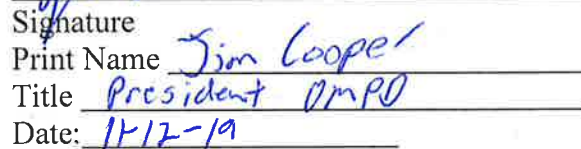 Signature
Print Name Jim Cooper
Title President OMPO
Date: 11-12-19